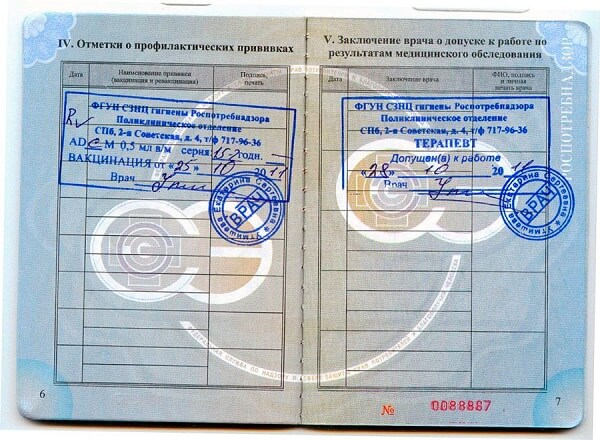 IV. Отметки о профилактических прививках
Дата
Наименование прививки
(вакцинация и ревакцинация)
Подпись,
печать
ФГУН СЗНЦ гигиены Роспотребнадзора
Поликлиническое отделение
СПб, 2-я Советская, д. 4, т/ф 717-96-36
Rv АДС М 0,5 мл в/м серия 157 годн.
ВАКЦИНАЦИЯ от «25» 10 2011
Врач
Екатерина Сергеевна
ВРАЧ
6
V. Заключение врача о допуске к работе по
результатам медицинского обследования
Дата
Заключение врача
ФИО, подпись
и личная
печать врача
ФГУН СЗНЦ гигиены Роспотребнадзора
Поликлиническое отделение
СПб, 2-я Советская, д. 4, т/ф 717-96-36
ТЕРАПЕВТ
Допущен(а) к работе
«28» 10 2011
Врач
Екатерина Сергеевна
ВРАЧ
РОСПОТРЕБНАДЗОР
7
№ 0088887